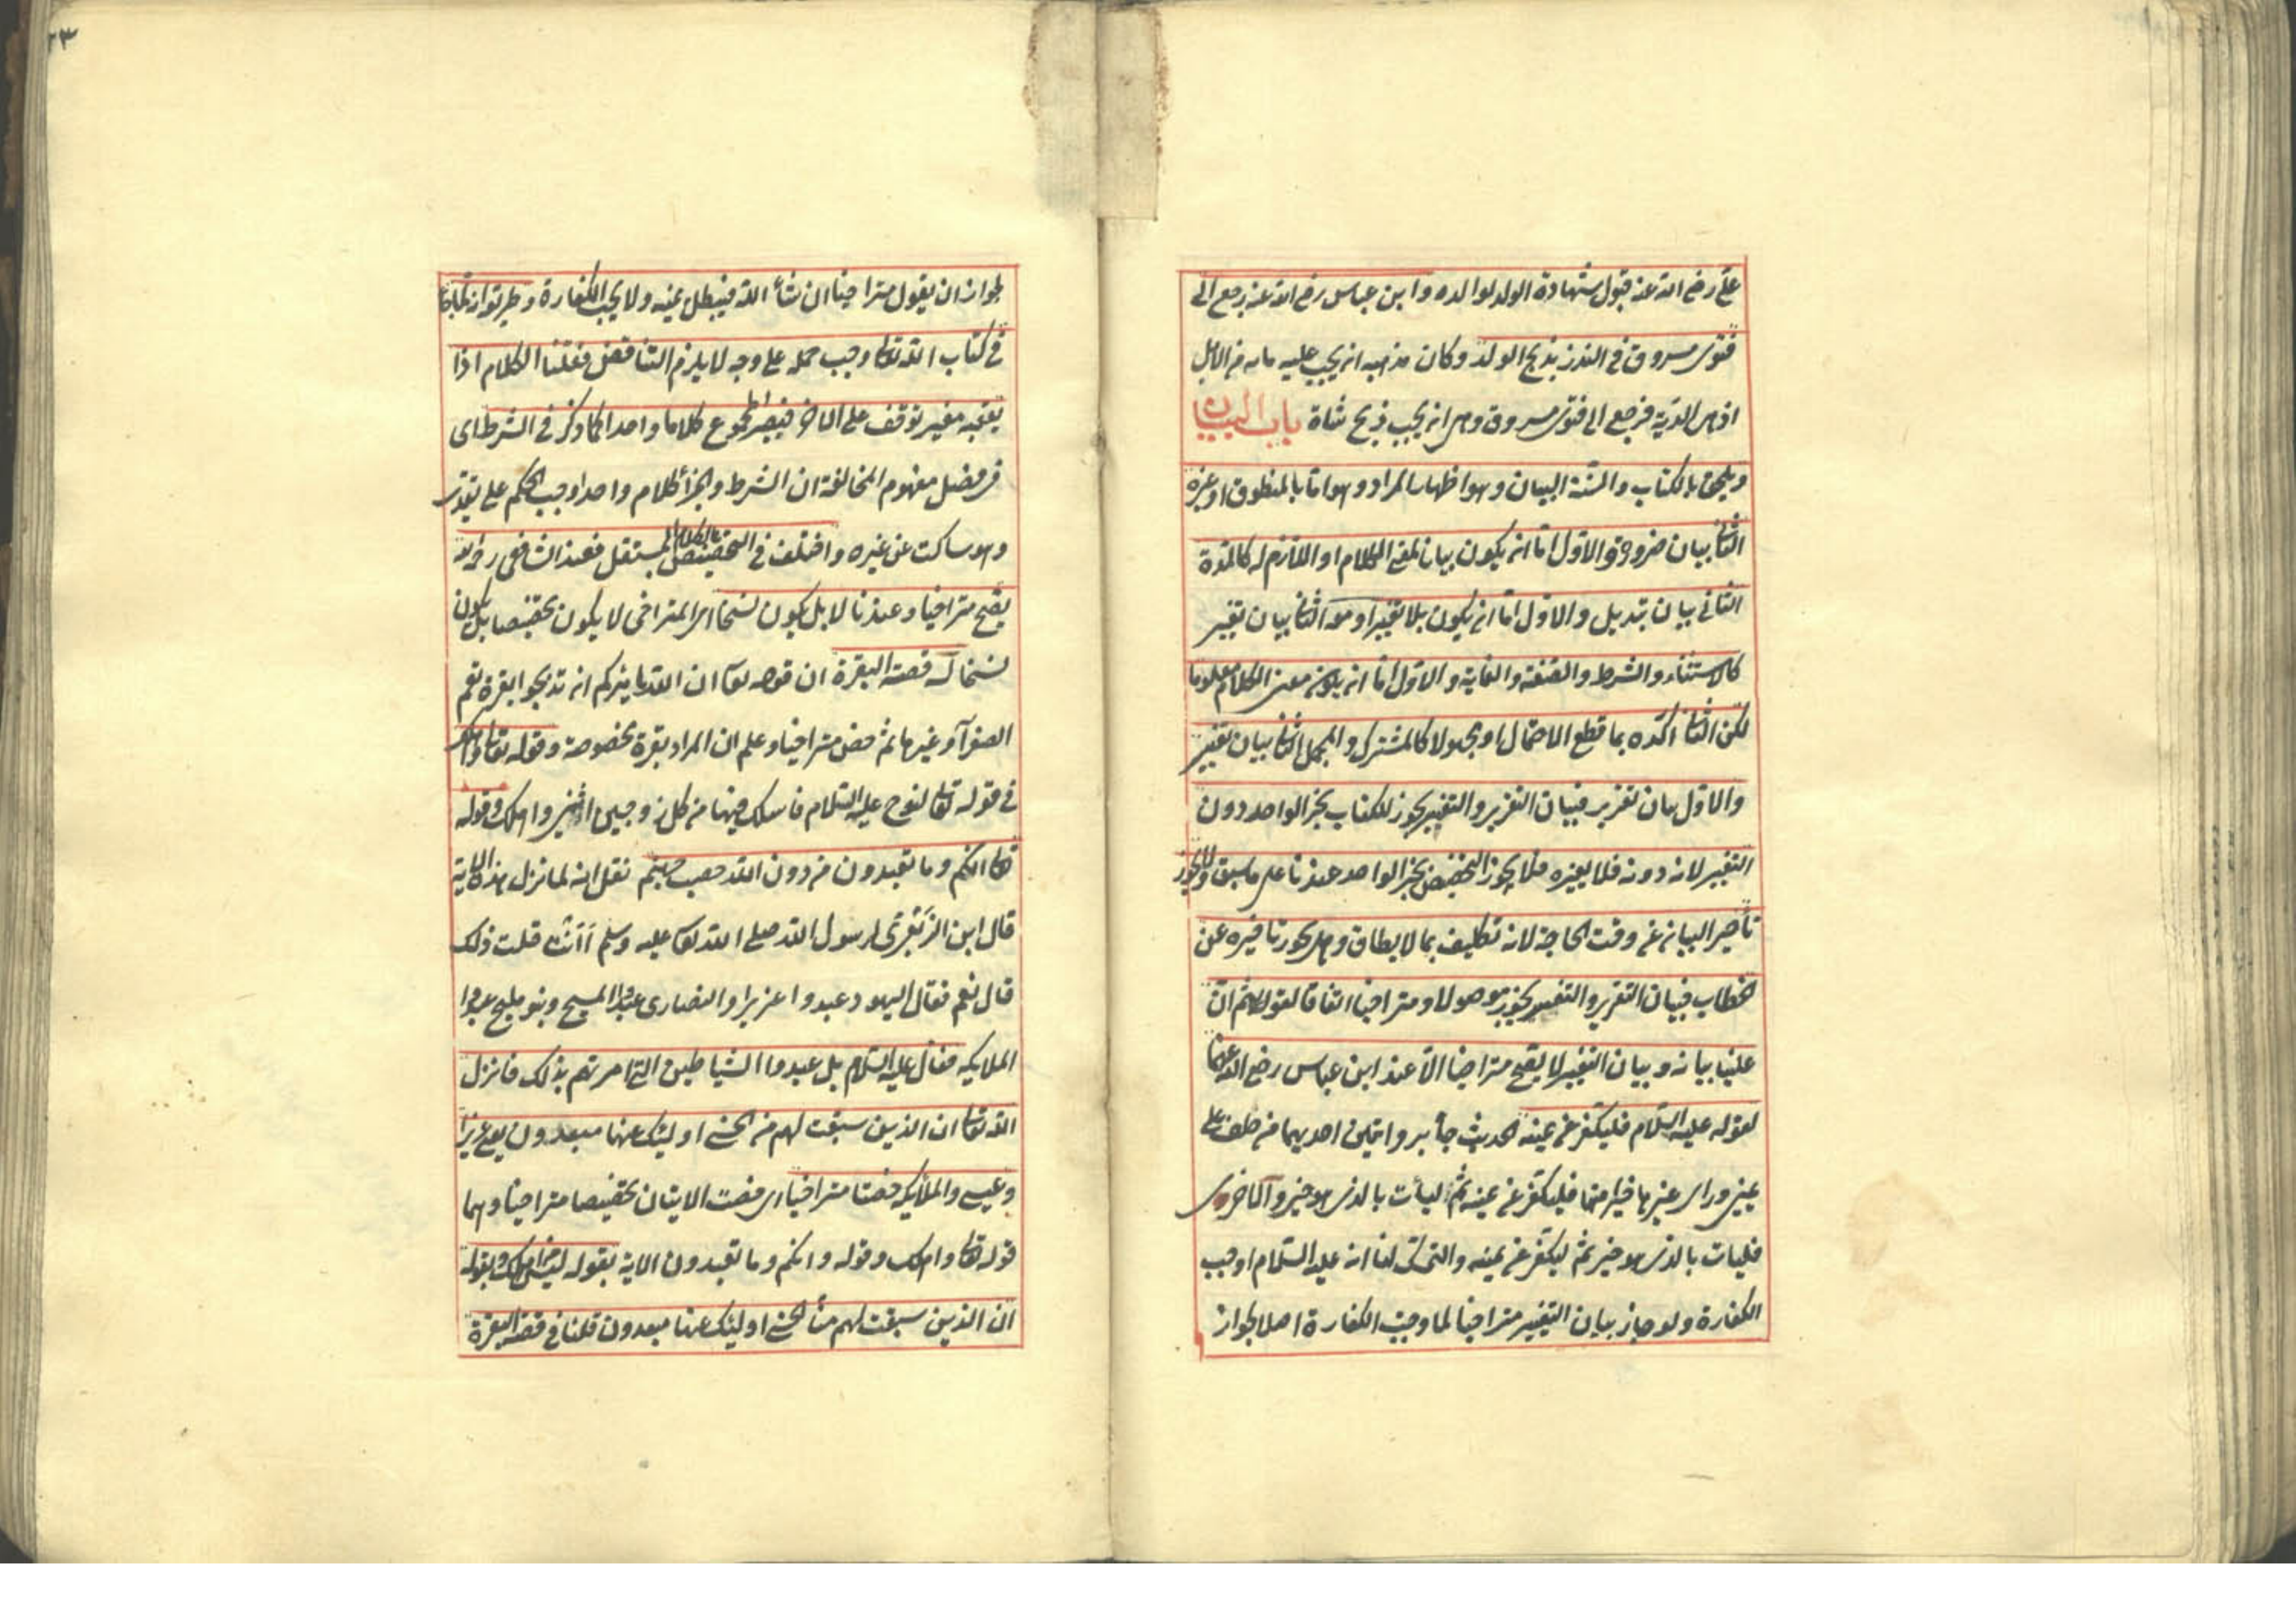 علي رضي الله عنه قبول شهادة الولد لوالده وابن عباس رضي الله عنه رجع الى
فتوى مسروق في النذر بذبح الولد وكان مذهبه انه يجب عليه مايه من الابل
اذ هي الدية فرجع الى فتوى مسروق وهي انه يجب ذبح شاة باب البيان
ويلحق بالكتاب والسنة البيان وهو اظهار المراد وهو اما بالمنطوق او غيره
الثاني بيان ضرورة والاول اما ان يكون بيانا لمعنى الكلام او اللازم له كالمدة
الثاني بيان تبديل والاول اما ان يكون بلا تغيير او معه الثاني بيان تغيير
كالاستثناء والشرط والصفة والغاية والاول اما ان يكون معنى الكلام معلوما
لكن الثاني اكده بما قطع الاحتمال او مجهولا كالمشترك والمجمل الثاني بيان تفسير
والاول بيان تقرير فبيان التقرير والتفسير يجوز للكتاب بخبر الواحد دون
التغيير لانه دونه فلا يغيره فلا يجوز التخصيص بخبر الواحد عندنا على ما سبق ولا يجوز
تأخير البيان عن وقت الحاجة لانه تكليف بما لا يطاق وهل يجوز تاخيره عن
الخطاب فبيان التقرير والتفسير يجوز موصولا ومتراخيا اتفاقا لقوله ثم ان
علينا بيانه وبيان التغيير لا يصح متراخيا الا عند ابن عباس رضي الله عنهما
لقوله عليه السلام فليكفر عن يمينه الحديث جاء بروايتين احديهما من حلف على
يمين وراى غيرها خيرا منها فليكفر عن يمينه ثم ليأت بالذي هو خير والاخرى
فليات بالذي هو خير ثم ليكفر عن يمينه والتمسك لنا انه عليه السلام اوجب
الكفارة ولو جاز بيان التغيير متراخيا لما وجبت الكفارة اصلا لجواز
لجواز ان يقول متراخيا ان شأ الله فيبطل يمينه ولا يجب الكفارة وطريقه انه
في كتاب الله تعالى وجب حمله على وجه لا يلزم التناقض فقلنا الكلام اذا
تعقبه مغير توقف على الاخر فيصير المجموع كلاما واحدا كما ذكر في الشرط اي
في فصل مفهوم المخالفة ان الشرط والجزأ كلام واحد اوجب الحكم على تقدير
وهو ساكت عن غيره واختلف في التخصيص بالكلام المستقل فعند الشافعي رحمه الله
يصح متراخيا وعندنا لا بل يكون نسخا اي المتراخي لا يكون تخصيصا بل يكون
نسخا له قصة البقرة ان قوله تعالى ان الله يامركم ان تذبحوا بقرة تعم
الصفرآ وغيرها ثم خص متراخيا وعلم ان المراد بقرة مخصوصة وقوله تعالى واهلك
في قوله تعالى لنوح عليه السلام فاسلك فيها من كل زوجين اثنين واهلك وقوله
تعالى انكم وما تعبدون من دون الله حصب جهنم نقل انه لما نزل هذه الاية
قال ابن الزبعرى لرسول الله صلى الله تعالى عليه وسلم أأنت قلت ذلك
قال نعم فقال اليهود عبدوا عزيرا والنصارى عبدوا المسيح وبنو مليح عبدوا
الملايكه فقال عليه السلام بل عبدوا الشياطين التي امرتهم بذلك فانزل
الله تعالى ان الذين سبقت لهم منا الحسنى اوليك عنها مبعدون يعني عزيرا
وعيسى والملايكه خصتا متراخيا اي خصت الايتان تخصيصا متراخيا وهما
قوله تعالى واهلك وقوله وانكم وما تعبدون الاية بقوله ليس من اهلك وبقوله
ان الذين سبقت لهم منا الحسنى اوليك عنها مبعدون قلنا في قصة البقرة